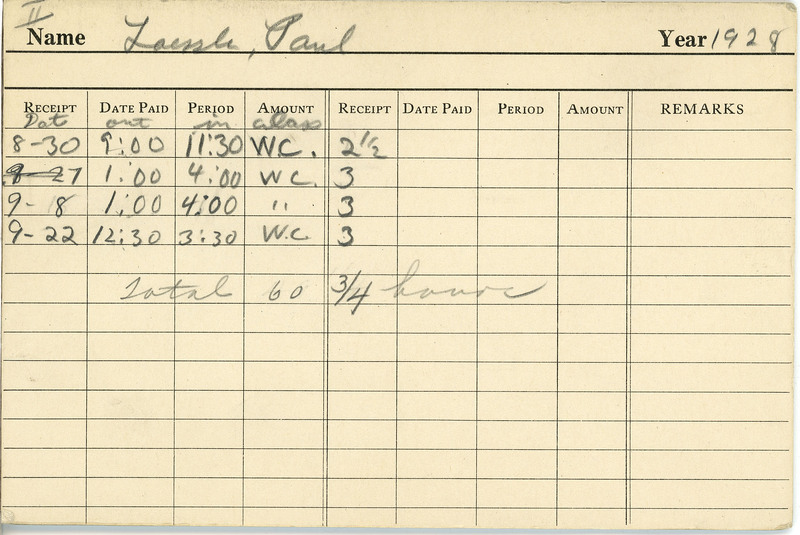 II
Name Loessle, Paul Year 1928
RECEIPT DATE PAID PERIOD AMOUNT RECEIPT DATE PAID PERIOD AMOUNT REMARKS
Dat out in class
8-30 9:00 11:30 W.C. 2 1/2
27 1:00 4:00 W.C. 3
9-18 1:00 4:00 " 3
9-22 12:30 3:30 W.C. 3
Total 60 3/4 hours